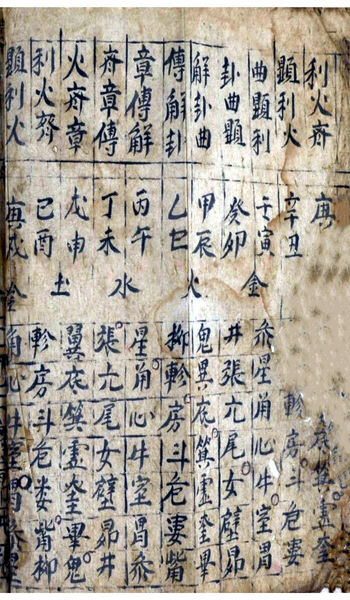 利火齐
顯利火
曲顯利
卦曲顯
解卦曲
傳解卦
章傳解
齐章傳
火齐章
利火齐
顯利火
庚
辛丑
壬寅
金
癸卯
甲辰
火
乙巳
丙午
水
丁未
戊申
土
己酉
庚戌
金
底箕虚奎
軫房斗危婁
参星角心牛室胃
井張亢尾女壁昴
鬼異底箕虚奎畢
柳軫房斗危婁觜
星角心牛室胃参
張亢尾女壁昴井
翼底箕虚奎畢鬼
軫房斗危婁觜柳
角心牛室胃参